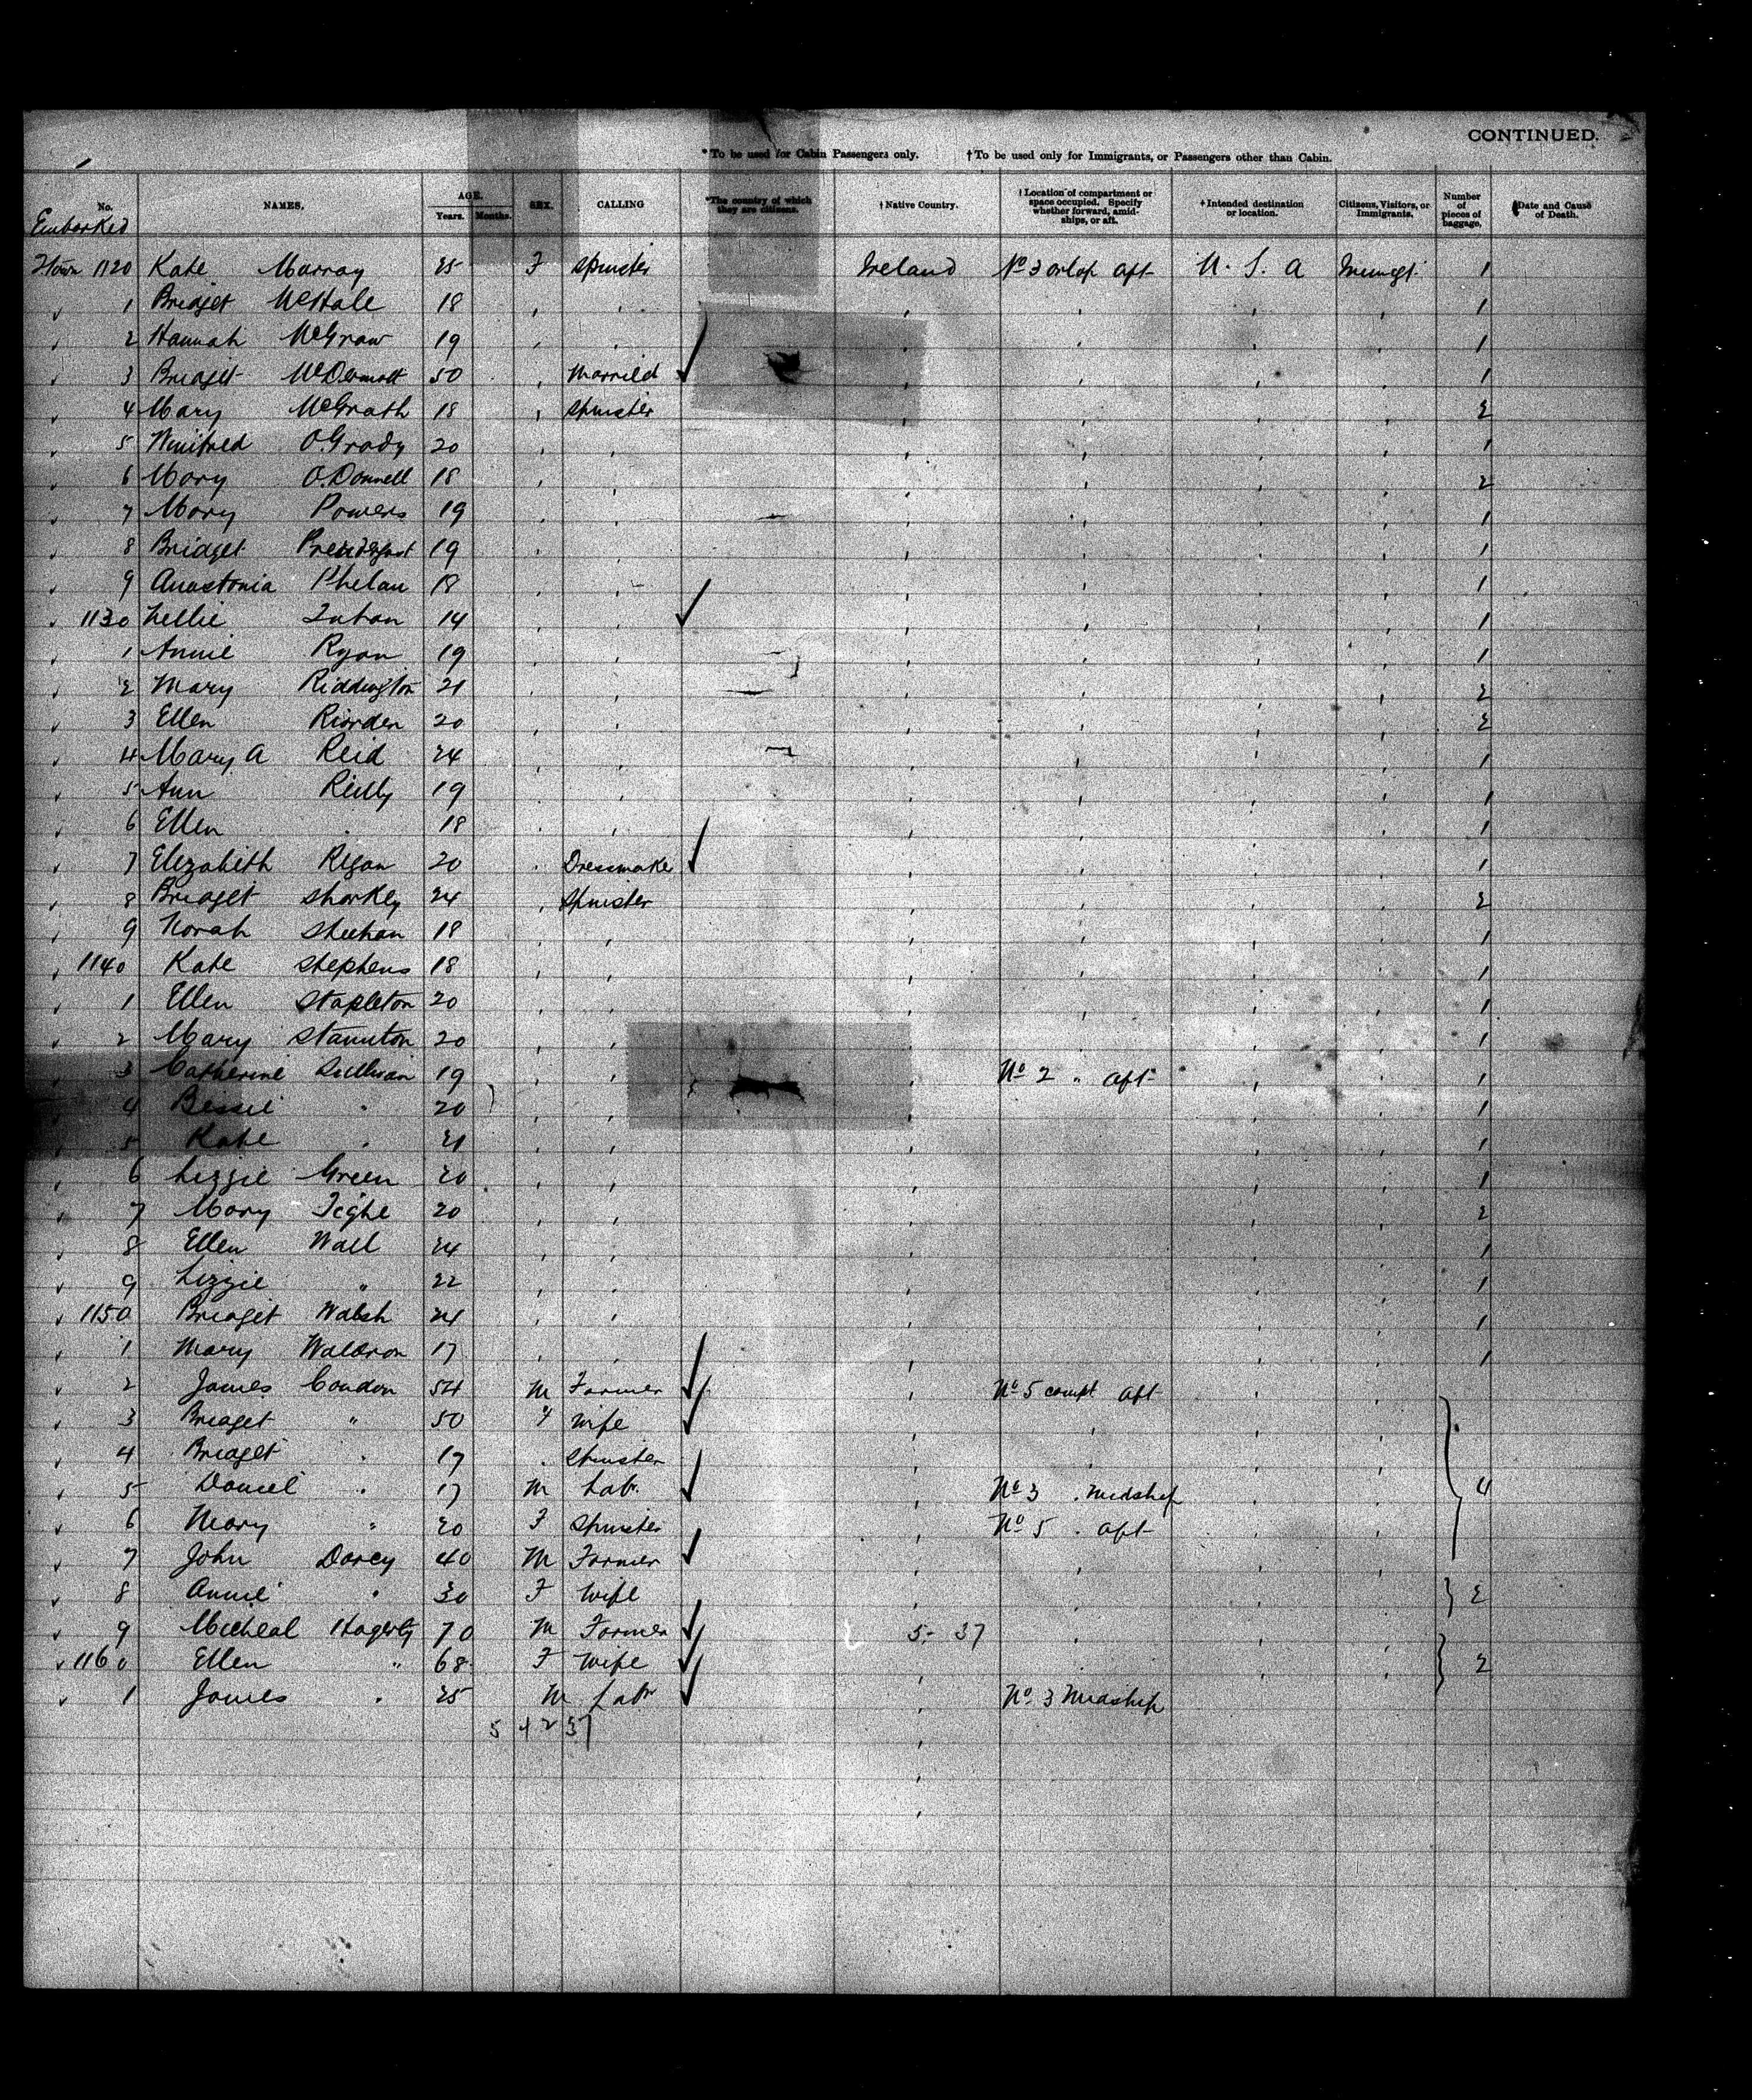 CONTINUED.
*To be used for Cabin Passengers only. †To be used only for Immigrants, or Passengers other than Cabin.
No. NAMES. AGE. Years. Months. SEX. CALLING *The country of which they are citizens. † Native Country. † Location of compartment or space occupied. Specify whether forward, amidships, or aft. † Intended destination or location. Citizens, Visitors, or Immigrants. Number of pieces of baggage. Date and Cause of Death.
Embarked
1120 Kate Murray 25 F Spinster Ireland No 3 orlop aft U. S. A Immigt 1
1 Bridget McHale 18 1
2 Hannah McGraw 19 1
3 Bridget McDermott 50 Married 1
4 Mary McGrath 18 Spinster 2
5 Winifred O'Grady 20 1
6 Mary O'Donnell 18 2
7 Mary Powers 19 1
8 Bridget Prendergast 19 1
9 Anastasia Phelan 18 1
1130 Nellie 14 1
1 Annie Ryan 19 1
2 Mary Riddington 21 2
3 Ellen Riorden 20 2
4 Mary A Reid 24 1
5 Ann Reilly 19 1
6 Ellen " 18 1
7 Elizabeth Regan 20 Dressmaker 1
8 Bridget Sharkey 24 Spinster 2
9 Norah Sheehan 18 1
1140 Kate Stephens 18 1
1 Ellen Stapleton 20 1
2 Mary Staunton 20 1
3 Catherine Sullivan 19 No 2 " aft 1
4 Bessie " 20 1
5 Kate " 21 1
6 Lizzie Green 20 1
7 Mary Tighe 20 2
8 Ellen Wall 24 1
9 Lizzie " 22 1
1150 Bridget Walsh 24 1
1 Mary Waldron 17 1
2 James Condon 54 M Farmer No 5 compt aft
3 Bridget " 50 F Wife
4 Bridget " 17 Spinster
5 Daniel " 17 M Labr No 3 " midship 4
6 Mary " 20 F Spinster No 5 " aft
7 John Darcy 40 M Farmer
8 Annie " 30 F Wife 2
9 Micheal Hagerty 70 M Farmer 5 - 37
1160 Ellen " 68 F Wife 2
1 James " 25 M Labr No 3 Midship
5 4 2 37